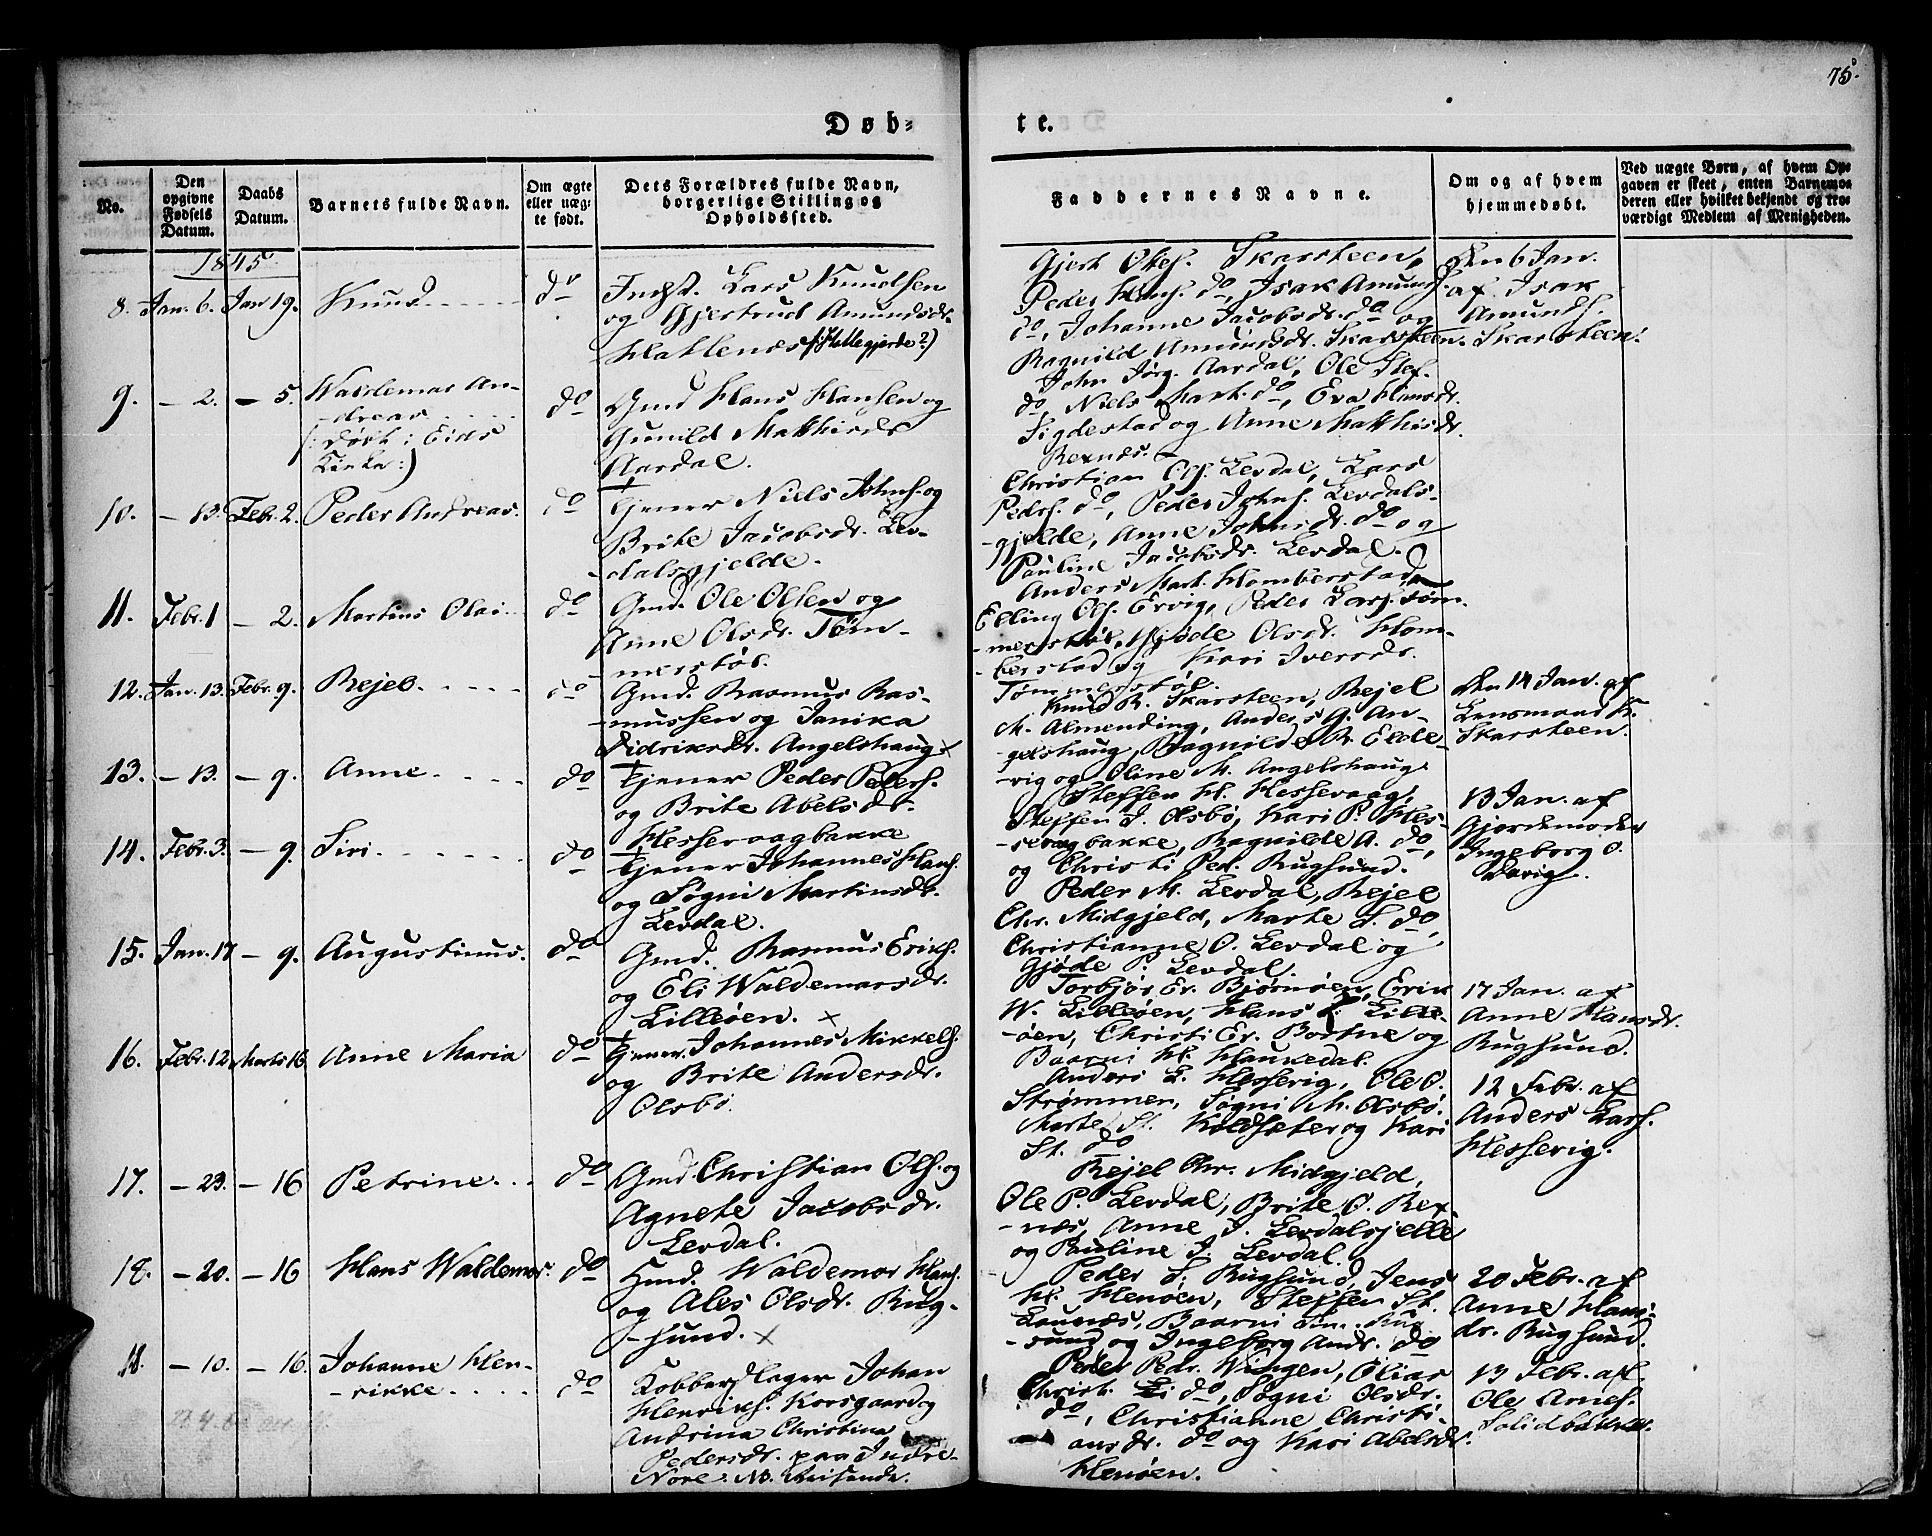 75.
Døb-
te.
No.
Den opgivne Fødsels Datum.
Daabs Datum.
Barnets fulde Navn.
Om ægte eller uæg-te født.
Dets Forældres fulde Navn, borgerlige Stilling og Opholdssted.
Faddernes Navne.
Om og af hvem hjemmedøbt.
Ved uægte Børn, af hvem Op-
gaven er skeet, enten Barnemo-
deren eller hvilket bekjendt og tro-
værdigt Medlem af Menigheden.
1845
8. Jan. 6. Jan 19. Knud do
Indst. Lars Knudsen
og Gjertrud Amundsdr.
(:Hellegjerde?)
Gjert Olss. Skarsteen,
Peder Hans. do, Isak Amunds.
do, Johanne Jacobsdr. do og
Ragnild Amundsdr. Skarsteen.
Den 6 Jan.
af Isak
Amunds.
Skarsteen.
9. - 2. - 5. Waldemar An-
dreas
(: døbt i Eids
Kirke :)
do
Gmd Hans Hansen og
Gunild Matthisdr
Aardal.
John Jørg. Aardal, Ole Stef.
do, Niels Mart. do, Eva Hansdr.
Sigdestad og Anne Matthisdr.
Rexnæs.
10. - 13. Febr. 2. Peder Andreas. do
Tjener Niels Johns. og
Brite Jacobsdr. Lev-
dalsgjelde.
Christian Ols. Levdal, Lars
Peders. do, Peder Johns. Levdals-
gjelde, Anne Johnsdr. do og
Pauline Jacobsdr. Levdal.
11. Febr. 1 - 2. Martinus Olai do
Gmd. Ole Olsen og
Anne Olsdr. Tøm-
merstøl.
Anders Mart. Homberstad,
Elling Ols. Ervig, Peder Lars. Tøm-
merstøl, Gjøde Olsdr. Hom-
berstad og Kari Iversdr.
Tømmerstøl.
12. Jan. 13. Febr. 9. Rejel do
Gmd. Rasmus Ras-
mussen og Janika
Didriksdr. Angelshaug x
Knud R. Skarsteen, Rejel
M. Almending, Anders G. An-
gelshaug, Ragnilde R. Elde-
vig og Oline M. Angelshaug.
Den 14 Jan. af
Lensmand K.
Skarsteen.
13. - 13. - 9. Anne do
Tjener Peder Peders.
og Brite Abelsdr.
Hessevaagbakke
Steffen H. Hessevaag,
Steffen J. Olsbø, Kari P. Hes-
sevaagbakke, Ragnilde A. do,
og Christi Ped. Rugsund.
13 Jan. af
Gjordemoder
Ingeborg O.
14. Febr. 3. - 9. Siri do
Tjener Johannes Hans.
og Søgni Martinsdr.
Levdal.
Peder M. Levdal, Rejel
Chr. Midgjeld, Marte S. do,
Christianne O. Levdal og
Gjøde P. Levdal.
15. Jan. 17 - 9. Augustinus. do
Gmd. Rasmus Eriks.
og Eli Waldemarsdr.
Lilleøen. x
Torbjør Er. Bjørnøen, Erik
W. Lilleøen, Hans L. Lille-
øen, Christi Er. Bortne og
Baarni H. Haukedal.
17 Jan. af
Anne Hansdr.
Rugsund.
16. Febr. 12 Marts 16. Anne Maria do
Tjener. Johannes Mikkels.
og Brite Andersdr.
Olsbø.
Anders L. Hessevig, Ole O.
Strømmen, Søgni M. Olsbø.
Marte St. Koldsæter og Kari
St. do
12 Febr. af
Anders Lars.
Hessevig.
17. - 23. - 16 Petrine do
Gmd. Christian Ols. og
Agnete Jacobsdr.
Levdal.
Rejel Chr. Midgjeld,
Ole P. Levdal, Brite O. Rex-
næs, Anne J. Levdalsgjelle
og Pauline J. Levdal.
18. - 20. - 16 Hans Waldemar. do
Hmd. Waldemar Hans.
og Ales Olsdr. Rug-
sund. x
Peder S. Rugsund, Jens
H. Henøen, Steffen St.
Baarni
sund og Ingeborg Andr. do
20 Febr. af
Anne Hans-
dr. Rugsund.
- 10. - 16. Johanne Hen-
rikke do
Kobberslager Johan
Henriks. Korsgaard og
Andrina Christina
Pedersdr. paa Indre-
Nore. NB. Reisende.
Peder Pedr. Wingen, Olias
Christ. do, Søgni Olsdr.
do, Christianne Christi-
ansdr. do og Kari Abelsdr.
Henøen.
13 Febr. af
Ole Arnes.